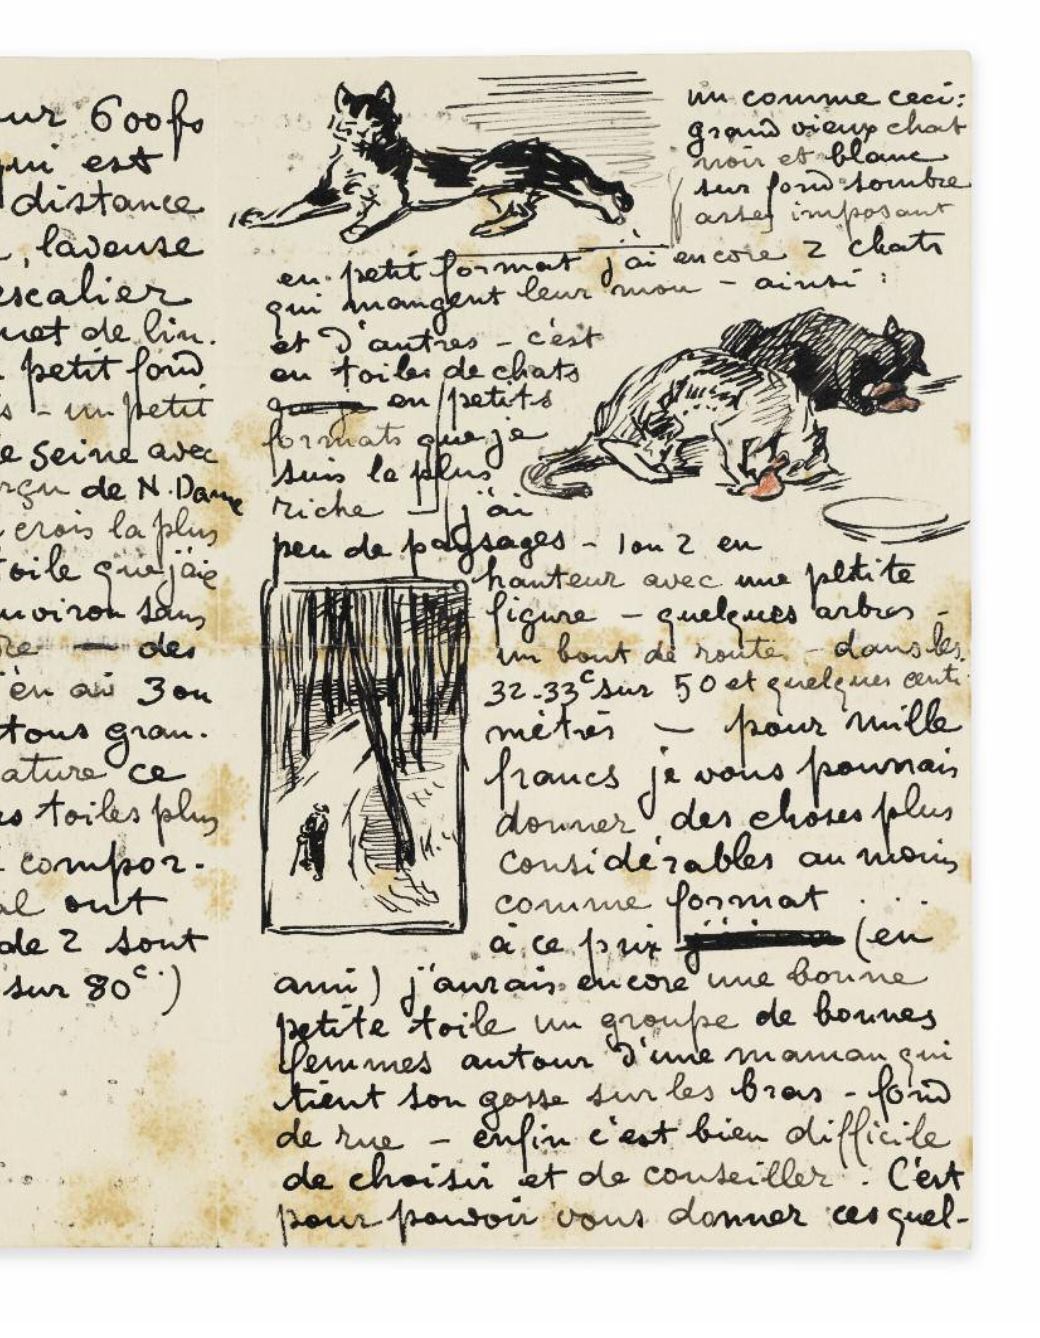 ur 600fs
qui est
distance
, laveuse
escalier
uet de lin.
petit fond
s - un petit
e Seine avec
rçu de N. Dame
crois la plus
toile que j'aie
environ sans
re — des
'en ai 3 ou
tous gran.
ature ce
s toiles plus
compor-
al ont
de 2 sont
sur 80c.)
un comme ceci:
grand vieux chat
noir et blanc
sur fond sombre
assez imposant
en petit format j'ai encore 2 chats
qui mangent leur mou - ainsi :
et d'autres - c'est
en toiles de chats
en petits
formats que je
suis le plus
riche - j'ai
peu de paysages - 1 ou 2 en
hauteur avec une petite
figure - quelques arbres -
un bout de route - dans les
32-33c sur 50 et quelques centi-
mètres — pour mille
francs je vous pourrais
donner des choses plus
considérables au moins
comme format ...
à ce prix (en
ami) j'aurais encore une bonne
petite toile un groupe de bonnes
femmes autour d'une maman qui
tient son gosse sur les bras - fond
de rue - enfin c'est bien difficile
de choisir et de conseiller. C'est
pour pouvoir vous donner ces quel-